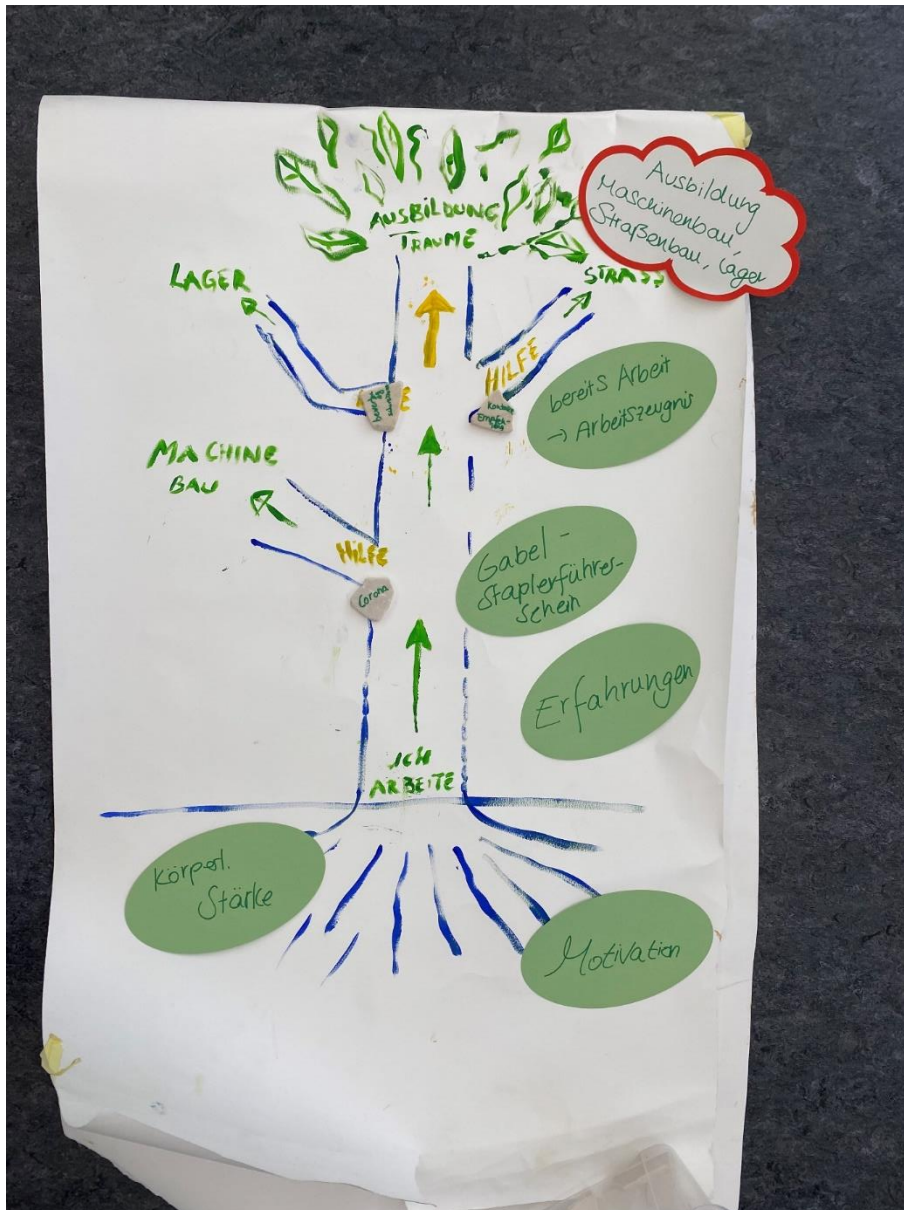 AUSBILDUNG
TRÄUME
Ausbildung
Maschinenbau,
Straßenbau, Lager
LAGER
STRASS
HILFE
bereits Arbeit
→ Arbeitszeugnis
MACHINE
BAU
HiLFE
Corona
Gabel-
Staplerführer-
schein
Erfahrungen
ICH
ARBEITE
Körperl.
Stärke
Motivation